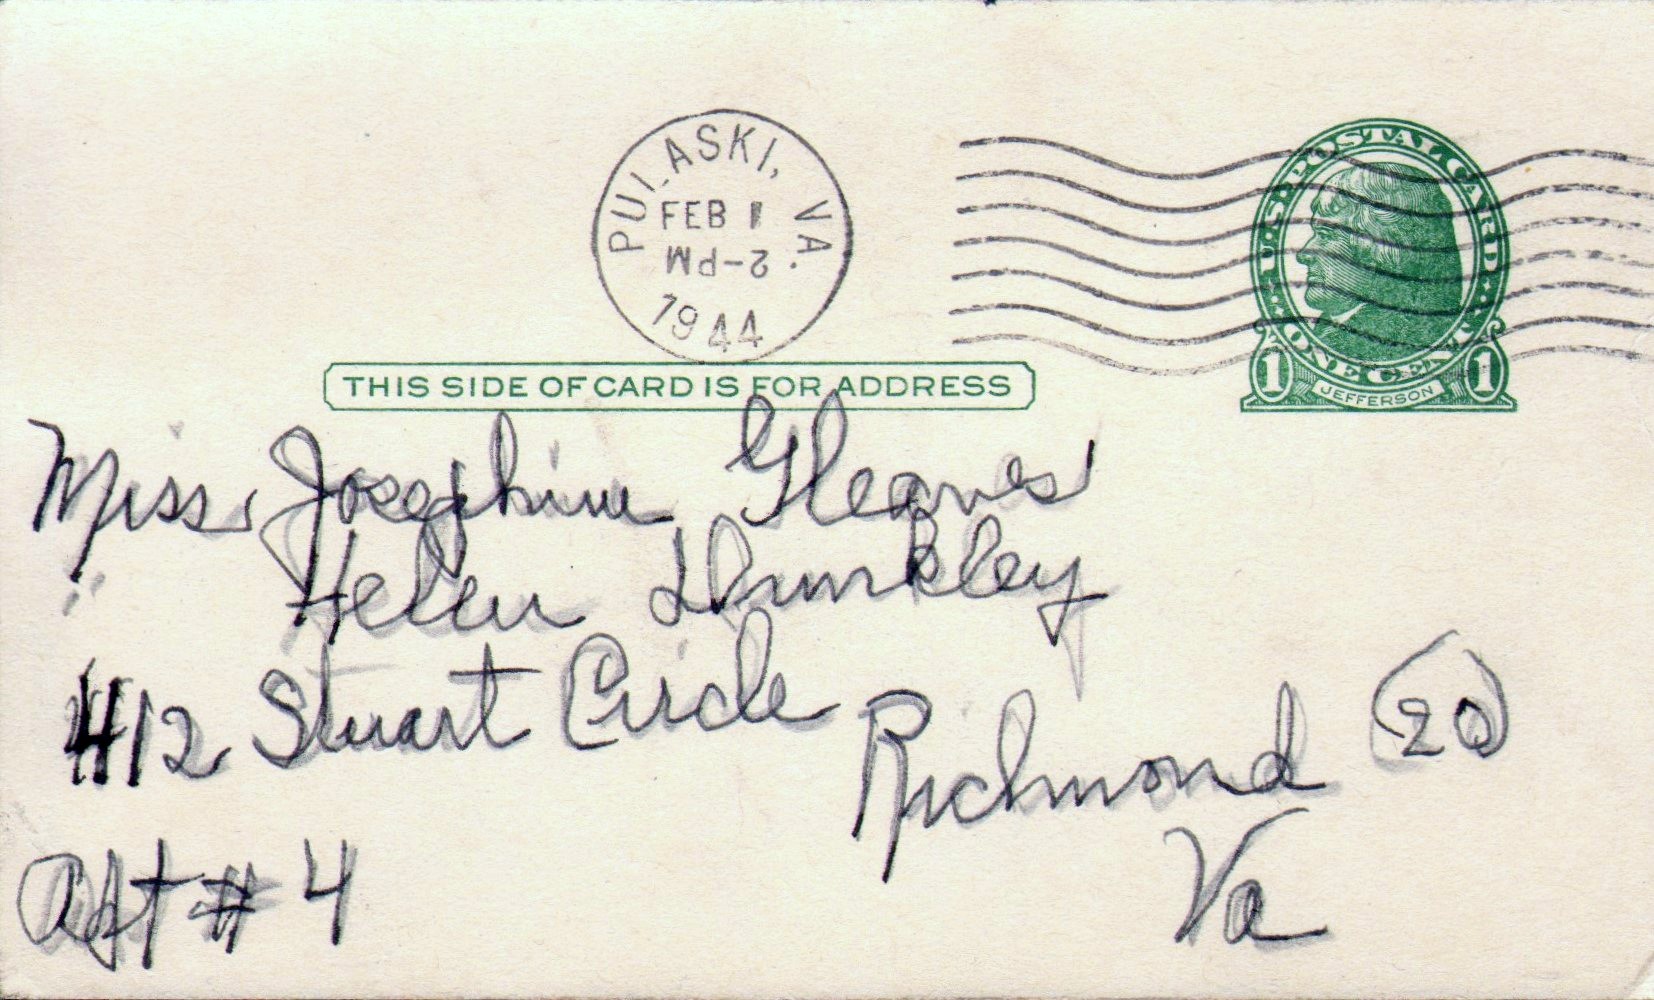 PULASKI, VA.
FEB 1
2-PM
1944
U.S. POSTAL CARD
ONE CENT
1 JEFFERSON 1
THIS SIDE OF CARD IS FOR ADDRESS
Miss Josephine Gleaves
" Helen Dunkley
412 Stuart Circle
Richmond (20)
Apt # 4
Va